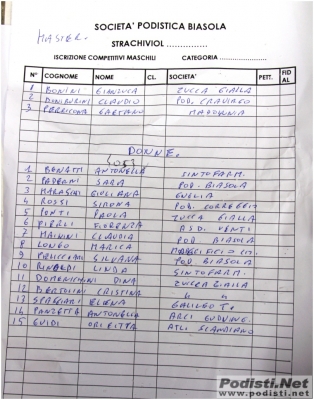 SOCIETA' PODISTICA BIASOLA
MASTER.
STRACHIVIOL ...............
ISCRIZIONE COMPETITIVI MASCHILI CATEGORIA ....................
N° COGNOME NOME CL. SOCIETA' PETT. FID AL
1 BONINI GIANLUCA ZUCCA GIALLA
2 CLAUDIO POD. CAVRIAGO
3 GAETANO MADONNINA
DONNE.
1 BENATTI ANTONELLA SINTOFARM.
2 PADERNI SARA POD. BIASOLA
3 MARASCHI GIULIANA GUGLIA
4 ROSSI SIMONA POD. CORREGGIO
5 PONTI PAOLA ZUCCA GIALLA
6 FIORENZA ASD. VENTI
7 MAININI CLAUDIA POD. BIASOLA
8 LONGO MARICA
9 PELLICIARI SILVANA POD BIASOLA
10 RINALDI LINDA SINTOFARM.
11 DOMENICHINI DINA ZUCCA GIALLA
12 BERTOLINI CRISTINA " "
13 SPAGGIARI ELENA GALILEO T.
14 PANZETTA ANTONELLA ARCI GUDUNOV.
15 GUIDI ORIETTA ATL. SCANDIANO
Podisti.Net
www.podisti.net